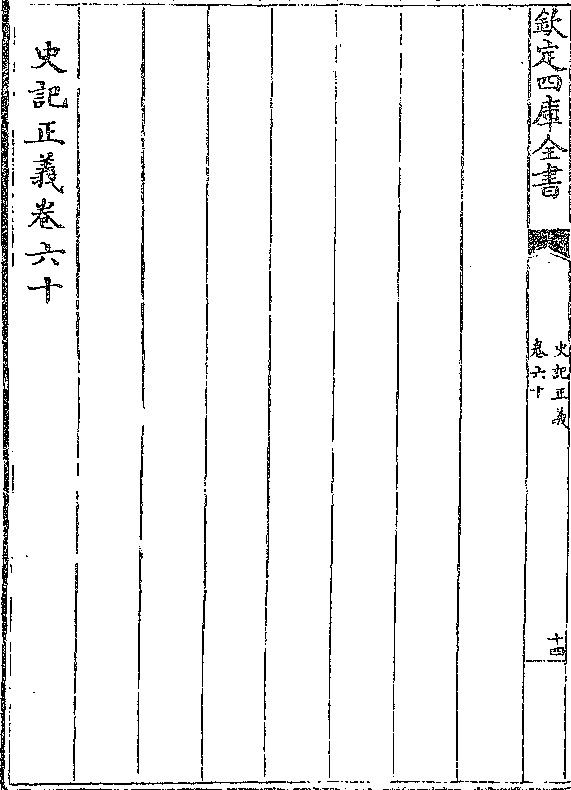 欽定四庫全書
史記正義
卷六十
十四
史記正義卷六十